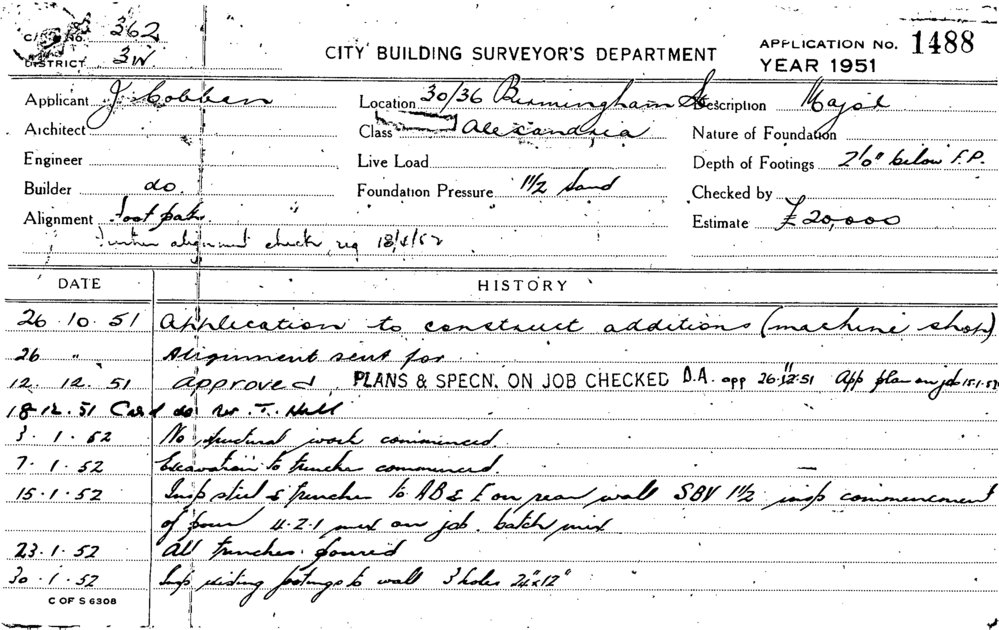 C/S No. 362
DISTRICT 3W
CITY BUILDING SURVEYOR'S DEPARTMENT
APPLICATION No. 1488
YEAR 1951
Applicant J Cobben
Location 30/36 Birmingham St
Description Major
Architect
Class Alexandria
Nature of Foundation
Engineer
Live Load
Depth of Footings 2'0" below F.P.
Builder do.
Foundation Pressure 1½ Sand
Checked by
Alignment Foot path
Estimate £20,000
Further alignment check req 18/4/52
DATE HISTORY
26.10.51 Application to construct additions (machine shop)
26 " Alignment sent for
12.12.51 approved PLANS & SPECN. ON JOB CHECKED D.A. app 26.11.51 App plan on job 15.1.52
18-12.51 Card do T. Hall
3.1.52 No structural work commenced
7.1.52 Excavation to trenches commenced.
15.1.52 Insp steel & trenches to AB & E on rear wall SBV 1½ insp commencement
of pour 4.2.1 mix on job. batch mix
23.1.52 All trenches poured
30.1.52 Insp existing footings to wall 3 holes 24"x12"
C OF S 6308